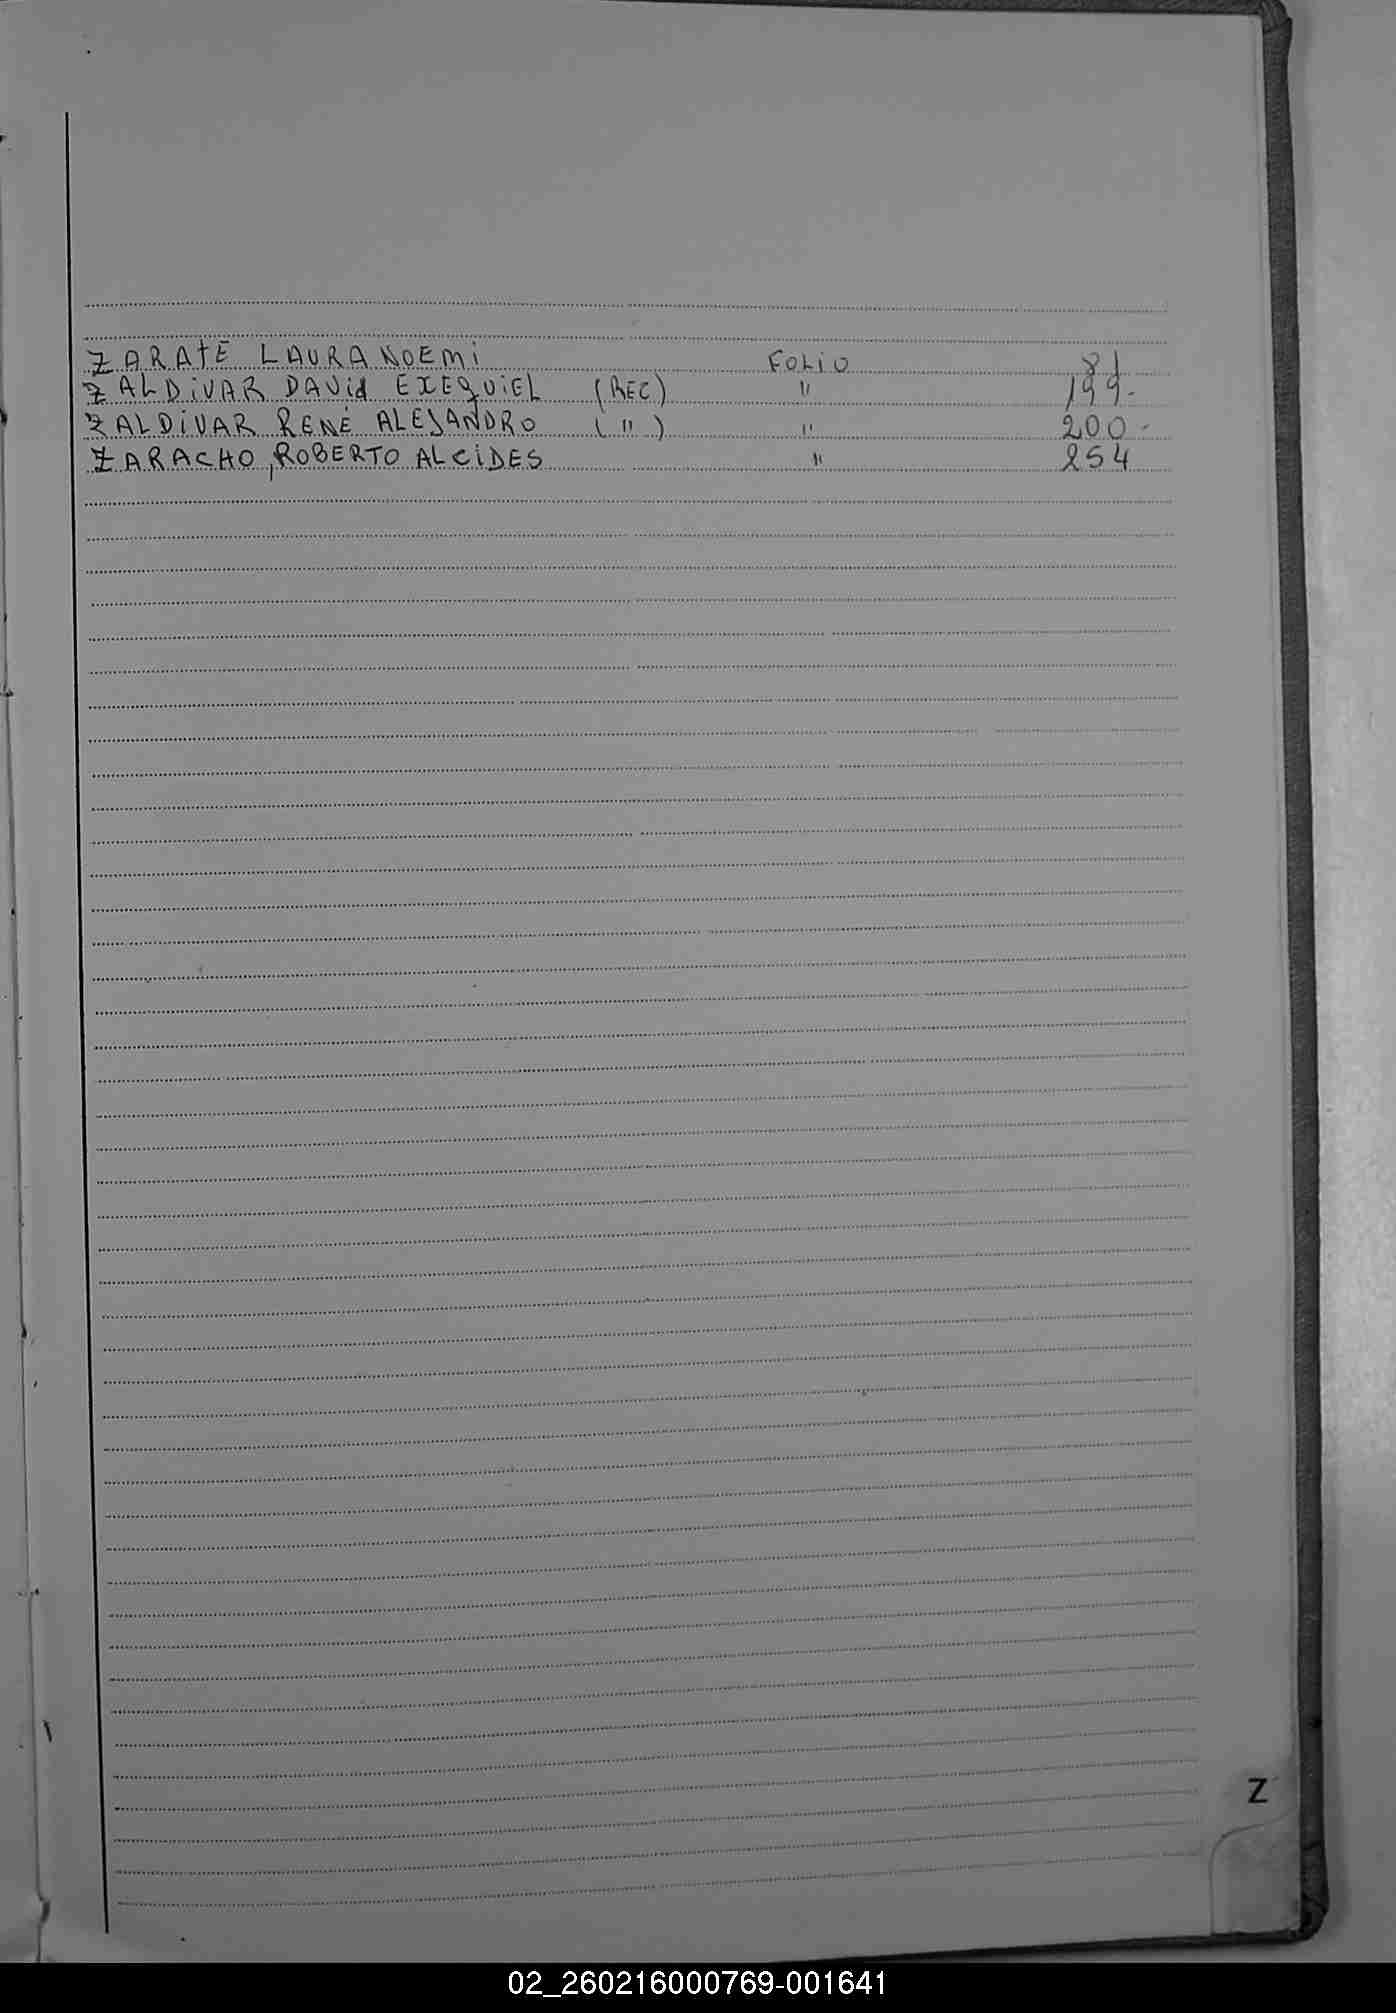 ZARATE LAURA NOEMI FOLIO 81
ZALDIVAR DAVid EXEQUIEL (REC) " 199-
ZALDIVAR RENÉ ALEJANDRO ( " ) " 200-
ZARACHO, ROBERTO ALCIDES " 254
Z
02_260216000769-001641